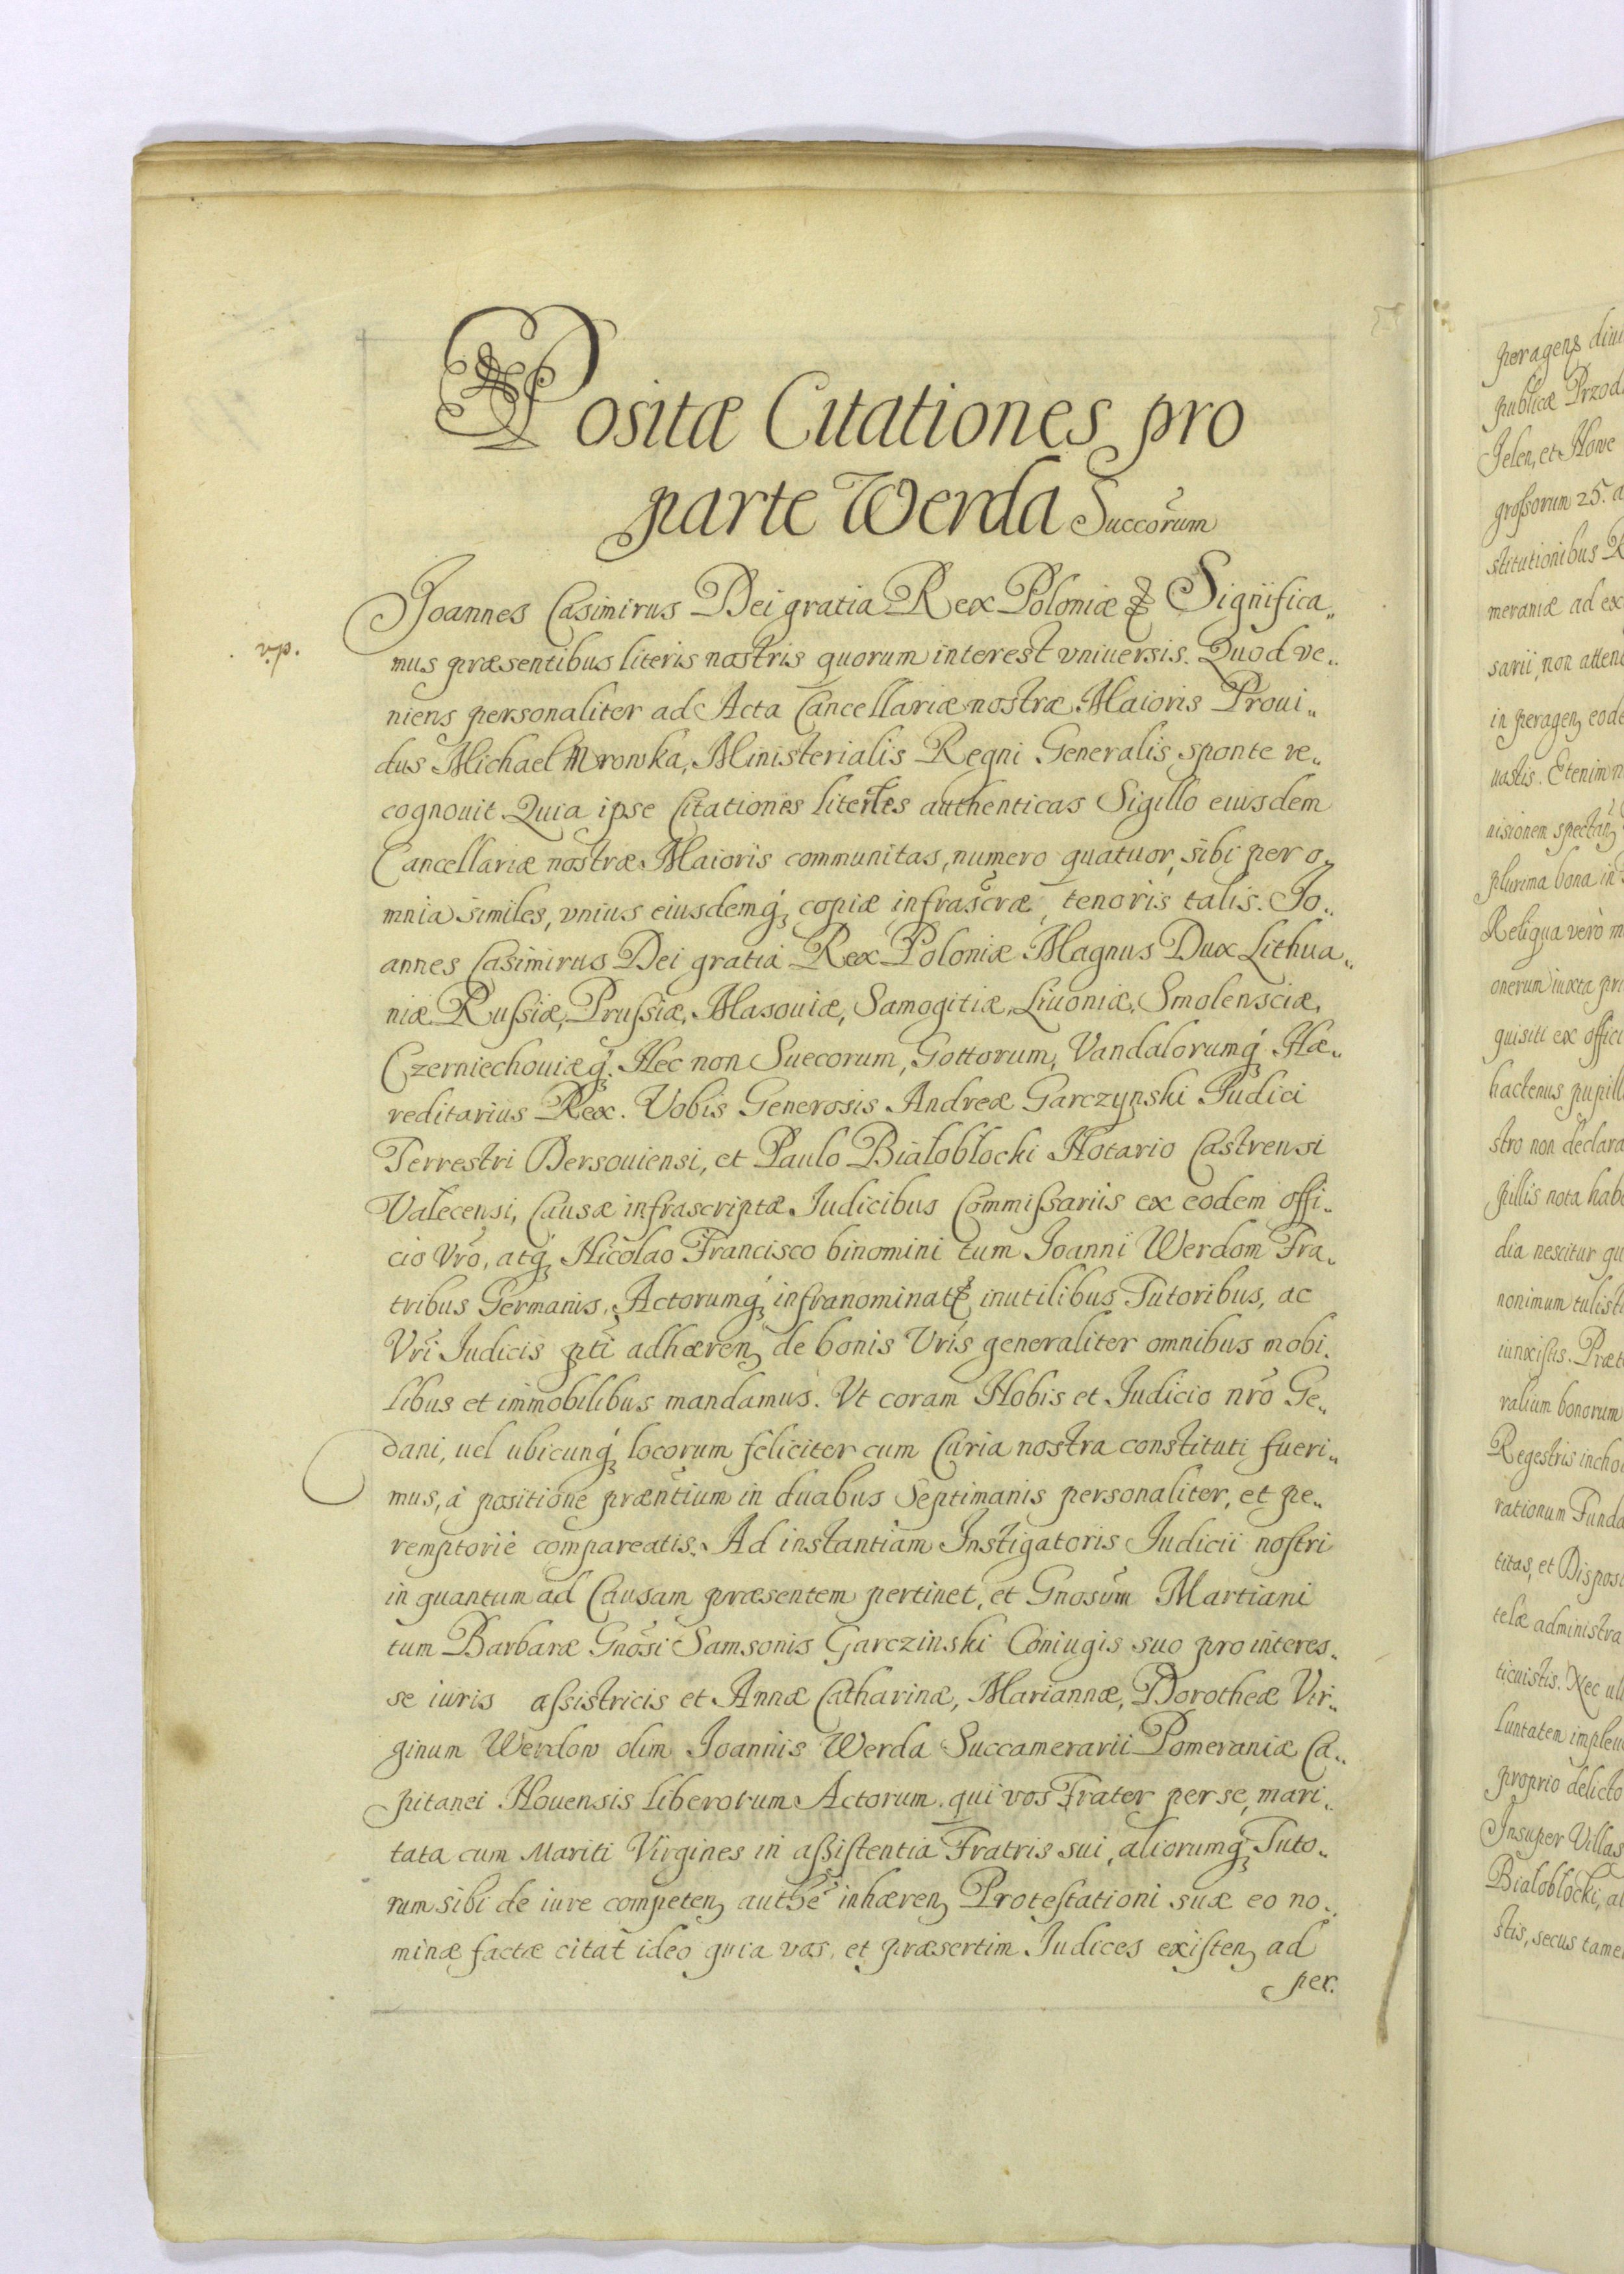 Positæ Citationes pro
parte Werda Succorum
Joannes Casimirus Dei gratia Rex Poloniæ & Significa„
mus præsentibus literis nostris quorum interest vniuersis. Quod ve„
niens personaliter ad Acta Cancellariæ nostræ Maioris Proui„
dus Michael Mrowka, Ministerialis Regni Generalis sponte re„
cognouit. Quia ipse Citationes literles authenticas Sigillo eiusdem
Cancellariæ nostræ Maioris communitas, numero quatuor, sibi per o„
mnia similes, vnius eiusdemq́ʒ copiæ infrascræ, tenoris talis. Jo„
annes Casimirus Dei gratia Rex Poloniæ Magnus Dux Lithua„
niæ Russiæ, Prussiæ, Masouiæ, Samogitiæ, Liuoniæ, Smolensciæ,
Czerniechouiæq́ʒ. Nec non Suecorum, Gottorum, Vandalorumq́ʒ Hæ„
reditarius Rex. Vobis Generosis Andreæ Garczynski Judici
Terrestri Dersouiensi, et Paulo Bialoblocki Notario Castrensi
Valecensi, Causæ infrascriptæ Judicibus Commissariis ex eodem offi„
cio Vrõ, atq́ʒ Nicolao Francisco binomini tum Joanni Werdom Fra„
tribus Germanis, Actorumq́ʒ infranominat inutilibus Tutoribus, ac
Vrĩ Judicis ptĩ adhærenʒ de bonis Vrĩs generaliter omnibus mobi„
libus et immobilibus mandamus. Vt coram Nobis et Judicio nrõ Ge„
dani, uel ubicunq́ʒ locorum feliciter cum Curia nostra constituti fueri„
mus, à positione præntium in duabus Septimanis personaliter, et pe„
remptoriè compareatis. Ad instantiam Instigatoris Judicii nostri
in quantum ad Causam præsentem pertinet, et Gnosum Martiani
tum Barbaræ Gnosi Samsonis Garczinski Coniugis suo pro interes„
se iuris assistricis et Annæ Catharinæ, Mariannæ, Dorotheæ Vir„
ginum Werdow olim Joannis Werda Succamerarii Pomeraniæ Ca„
pitanei Nouensis liberorum Actorum. qui vos Frater per se, mari„
tata cum Mariti Virgines in assistentia Fratris sui, aliorumq́ʒ Tuto„
rum sibi de iure competenʒ authẽ inhærenʒ Protestationi suæ eo no„
minæ factæ citat ideo quia vos, et præsertim Judices existenʒ ad
per.
publicæ
Jelen, et
grossorum 25.
stitutionibus
meraniæ ad ex
sarii, non atten
in peragenʒ eod
uastis. Etenim
uisionem spectanʒ
plurima bona in
Reliqua verò
onerum iuxta pri
quisiti ex offici
hactenus pupill
stro non declara
pillis nota hab
dia nescitur qu
nonimum tulist
iunxistis. Præt
ralium bonorum
Regestris incho
rationum Funda
titas, et Disposi
telæ administra
ticuistis. Nec ul
luntatem impleu
proprio delicto
Insuper Villas
Bialoblocki, al
stis, secus tamen